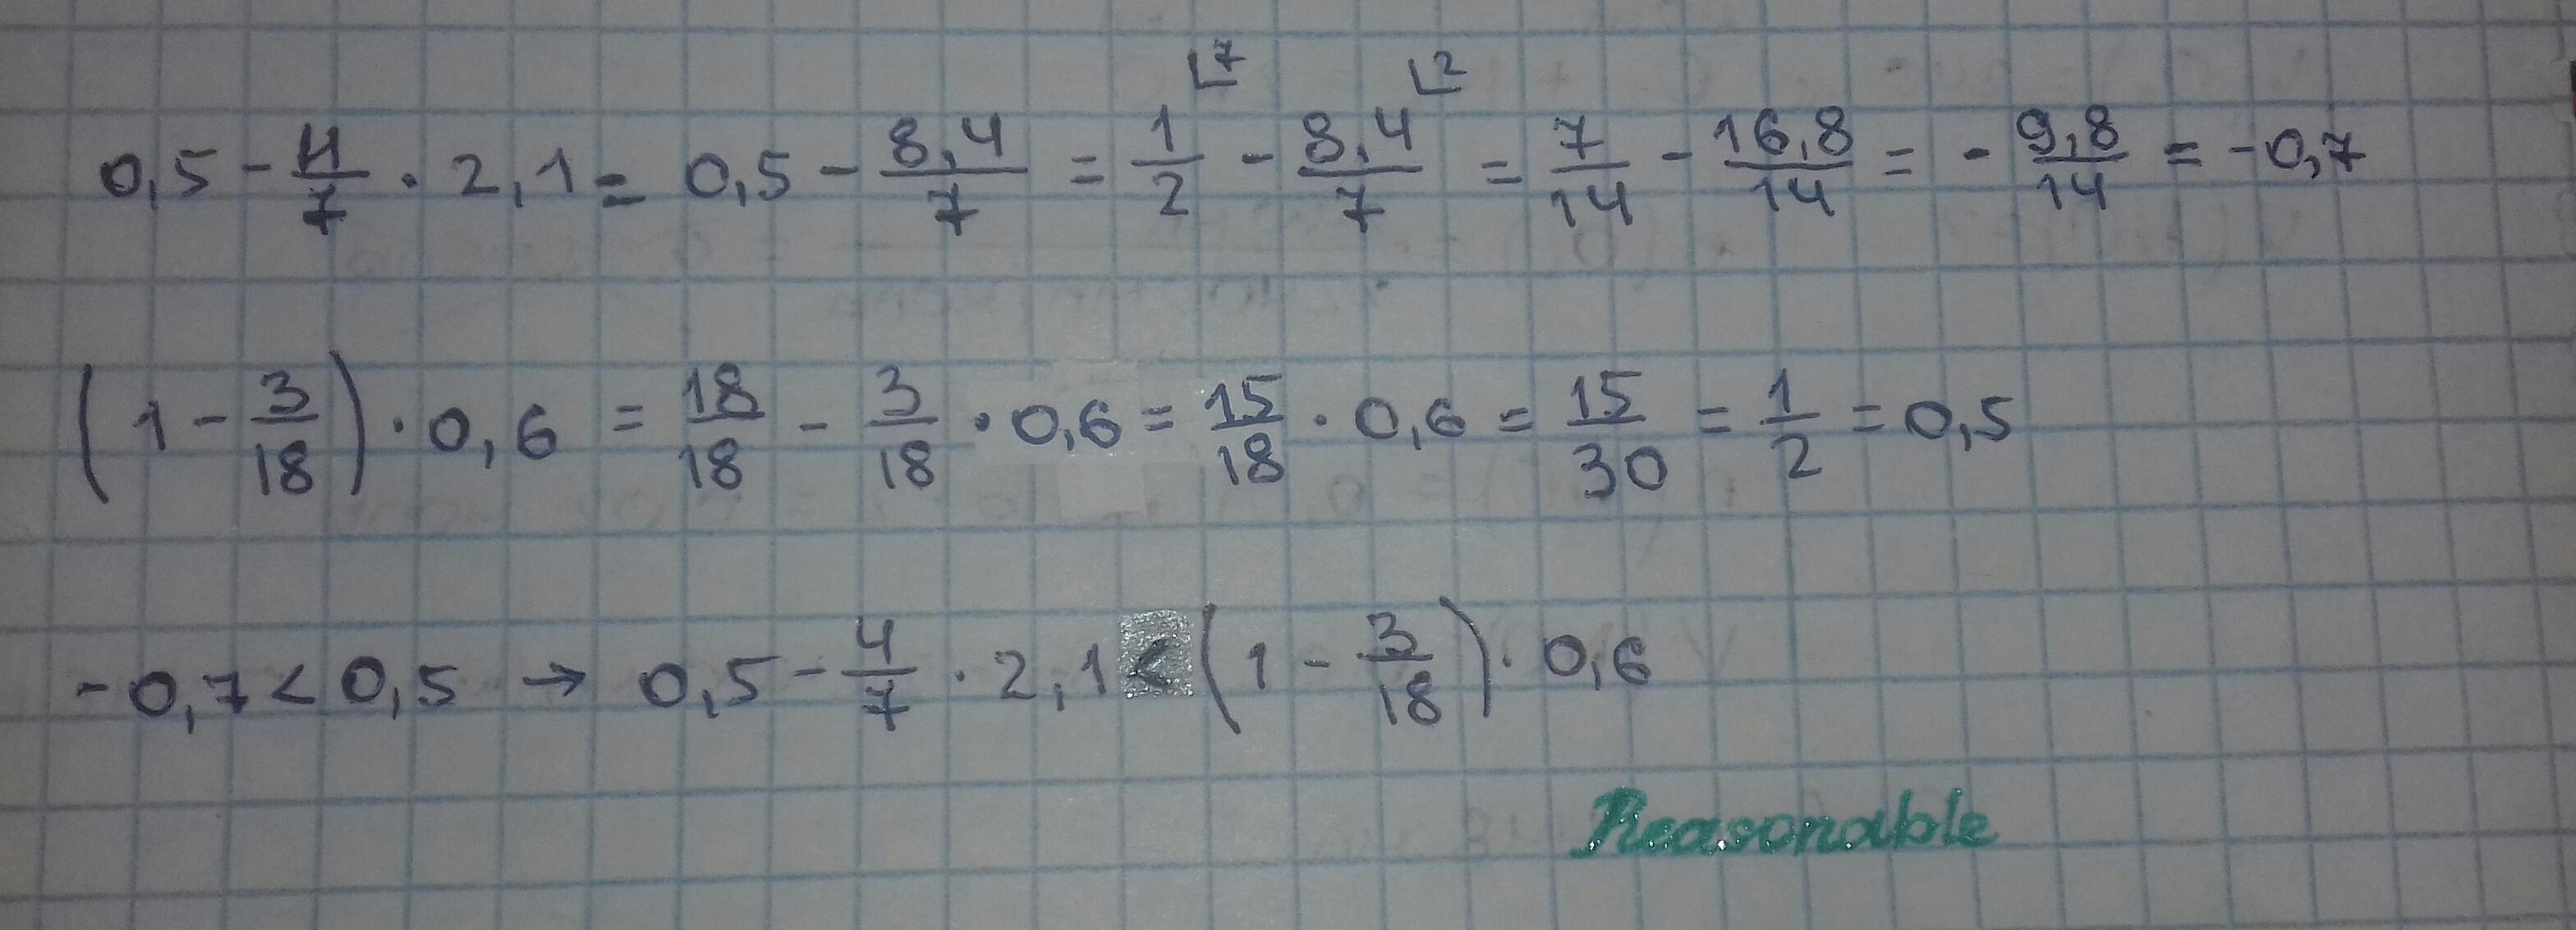 0,5 - 4/7 · 2,1 = 0,5 - 8,4/7 = 1/2 ⌊7 - 8,4/7 ⌊2 = 7/14 - 16,8/14 = - 9,8/14 = -0,7
(1 - 3/18) · 0,6 = 18/18 - 3/18 · 0,6 = 15/18 · 0,6 = 15/30 = 1/2 = 0,5
-0,7 < 0,5 → 0,5 - 4/7 · 2,1 < (1 - 3/18) · 0,6
Reasonable